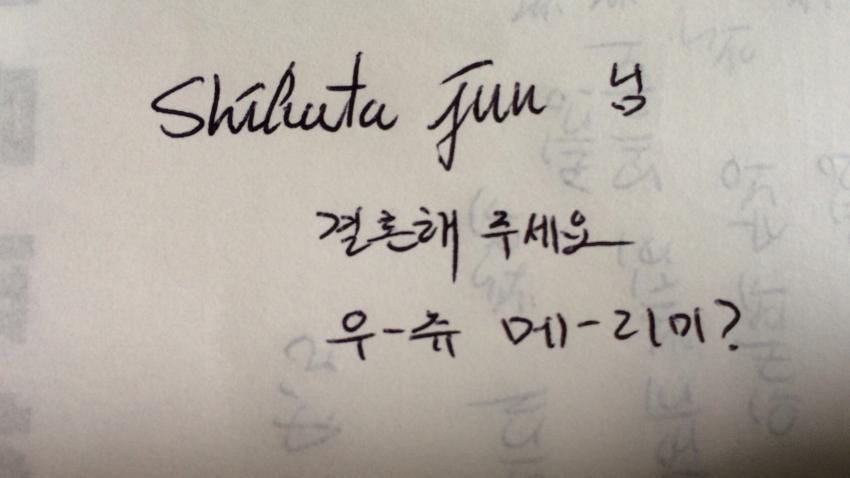 Shibata jun 님
결혼해 주세요
우-쥬 메-리미?